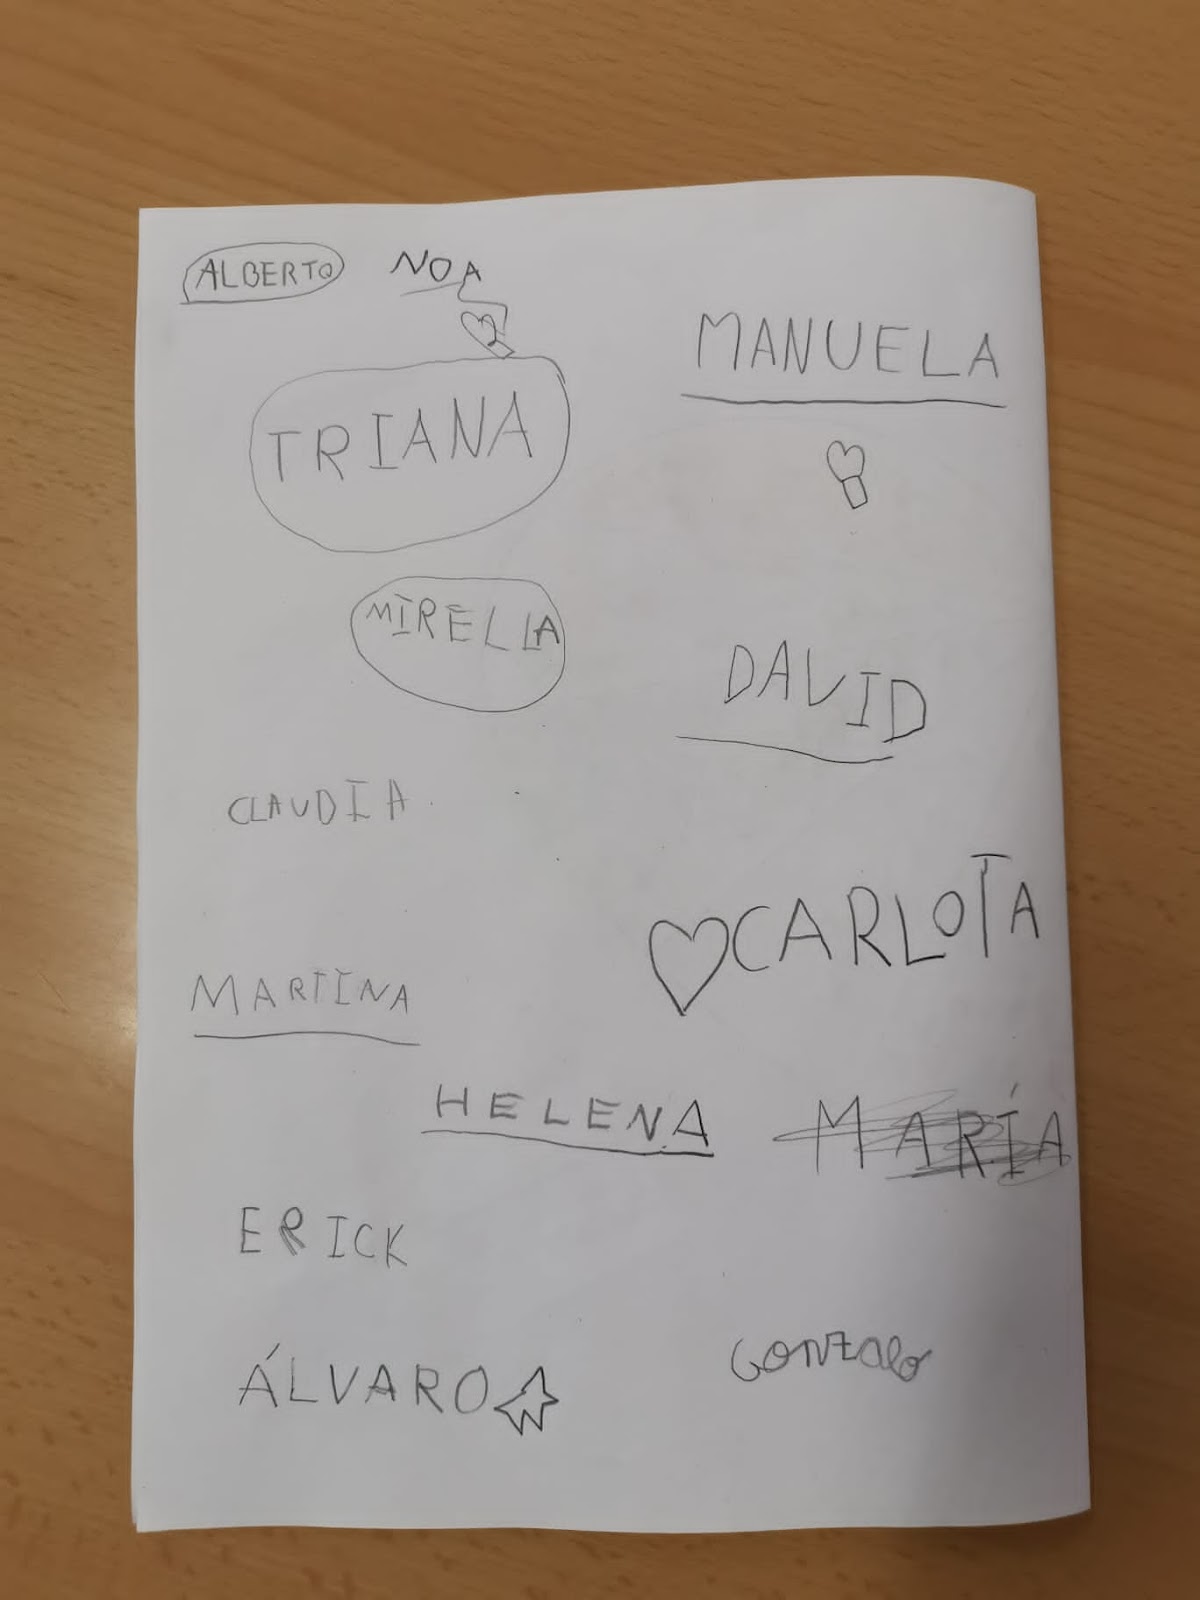 ALBERTO NOA
MANUELA
TRIANA
MIRELLA
DAVID
CLAUDIA
CARLOTA
MARTINA
HELENA MARÍA
ERICK
GONZALO
ÁLVARO